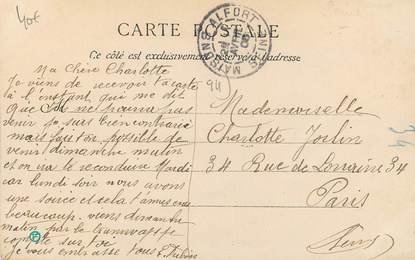 40€
CARTE POSTALE
Ce côté est exclusivement réservé à l'adresse
MAISONS-ALFORT
94
Ma Chère Charlotte
Je viens de recevoir ta carte
à l'instant, que me dit
que tu ne pourra pas
venir je suis bien contrarié
mais fait ton possible de
venir dimanche matin
et on ira te reconduire Mardi
car lundi soir nous avons
une soirée et cela t'amusera
beaucoup. viens dimanche
matin par le tramway je
compte sur toi
Je vous embrasse tous
Mademoiselle
Charlotte Joslin
34 Rue de Lorraine 34
Paris